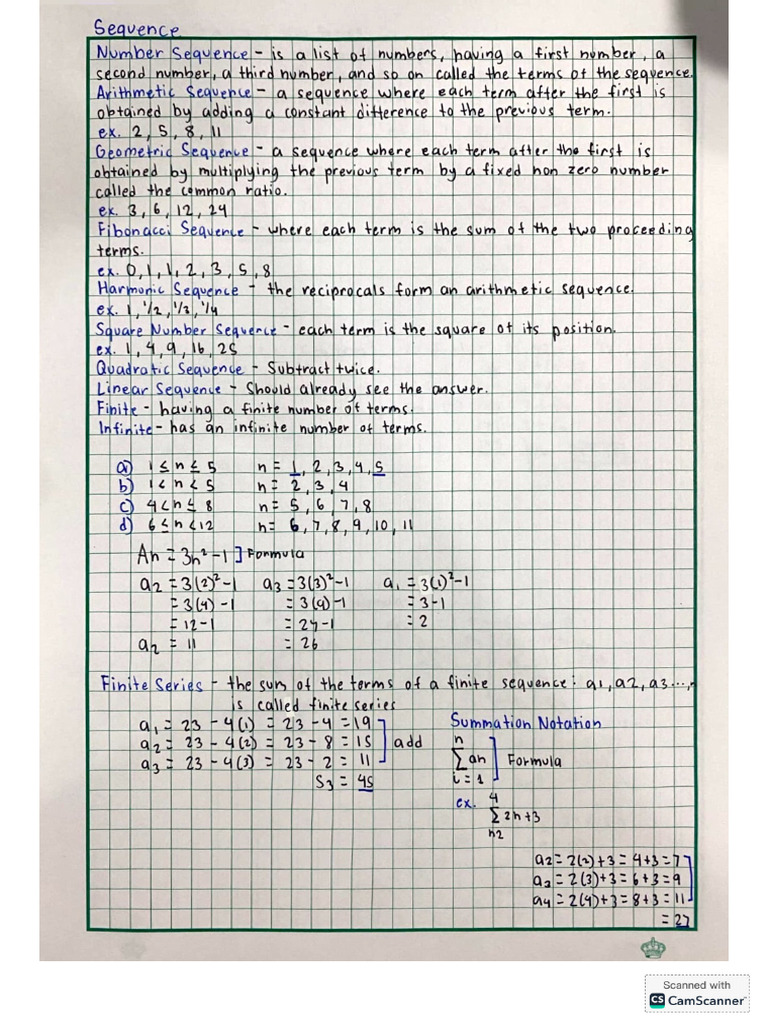 Sequence
Number Sequence - is a list of numbers, having a first number, a
second number, a third number, and so on called the terms of the sequence.
Arithmetic Sequence - a sequence where each term after the first is
obtained by adding a constant difference to the previous term.
ex. 2, 5, 8, 11
Geometric Sequence - a sequence where each term after the first is
obtained by multiplying the previous term by a fixed non zero number
called the common ratio.
ex. 3, 6, 12, 24
Fibonacci Sequence - where each term is the sum of the two proceeding
terms.
ex. 0, 1, 1, 2, 3, 5, 8
Harmonic Sequence - the reciprocals form an arithmetic sequence.
ex. 1, 1/2, 1/3, 1/4
Square Number Sequence - each term is the square of its position.
ex. 1, 4, 9, 16, 25
Quadratic Sequence - Subtract twice.
Linear Sequence - Should already see the answer.
Finite - having a finite number of terms.
Infinite - has an infinite number of terms.
a) 1 ≤ n ≤ 5 n = 1, 2, 3, 4, 5
b) 1 < n < 5 n = 2, 3, 4
c) 4 < n ≤ 8 n = 5, 6, 7, 8
d) 6 ≤ n < 12 n = 6, 7, 8, 9, 10, 11
An = 3n² - 1 ] Formula
a2 = 3(2)² - 1 a3 = 3(3)² - 1 a1 = 3(1)² - 1
= 3(4) - 1 = 3(9) - 1 = 3 - 1
= 12 - 1 = 27 - 1 = 2
a2 = 11 = 26
Finite Series - the sum of the terms of a finite sequence: a1, a2, a3...,n
is called finite series
a1 = 23 - 4(1) = 23 - 4 = 19 Summation Notation
a2 = 23 - 4(2) = 23 - 8 = 15 ] add n
a3 = 23 - 4(3) = 23 - 2 = 11 ∑ an ] Formula
S3 = 45 i = 1
ex. 4
∑ 2n + 3
n2
a2 = 2(2) + 3 = 4 + 3 = 7
a3 = 2(3) + 3 = 6 + 3 = 9
a4 = 2(4) + 3 = 8 + 3 = 11
= 27
Scanned with
CS CamScanner